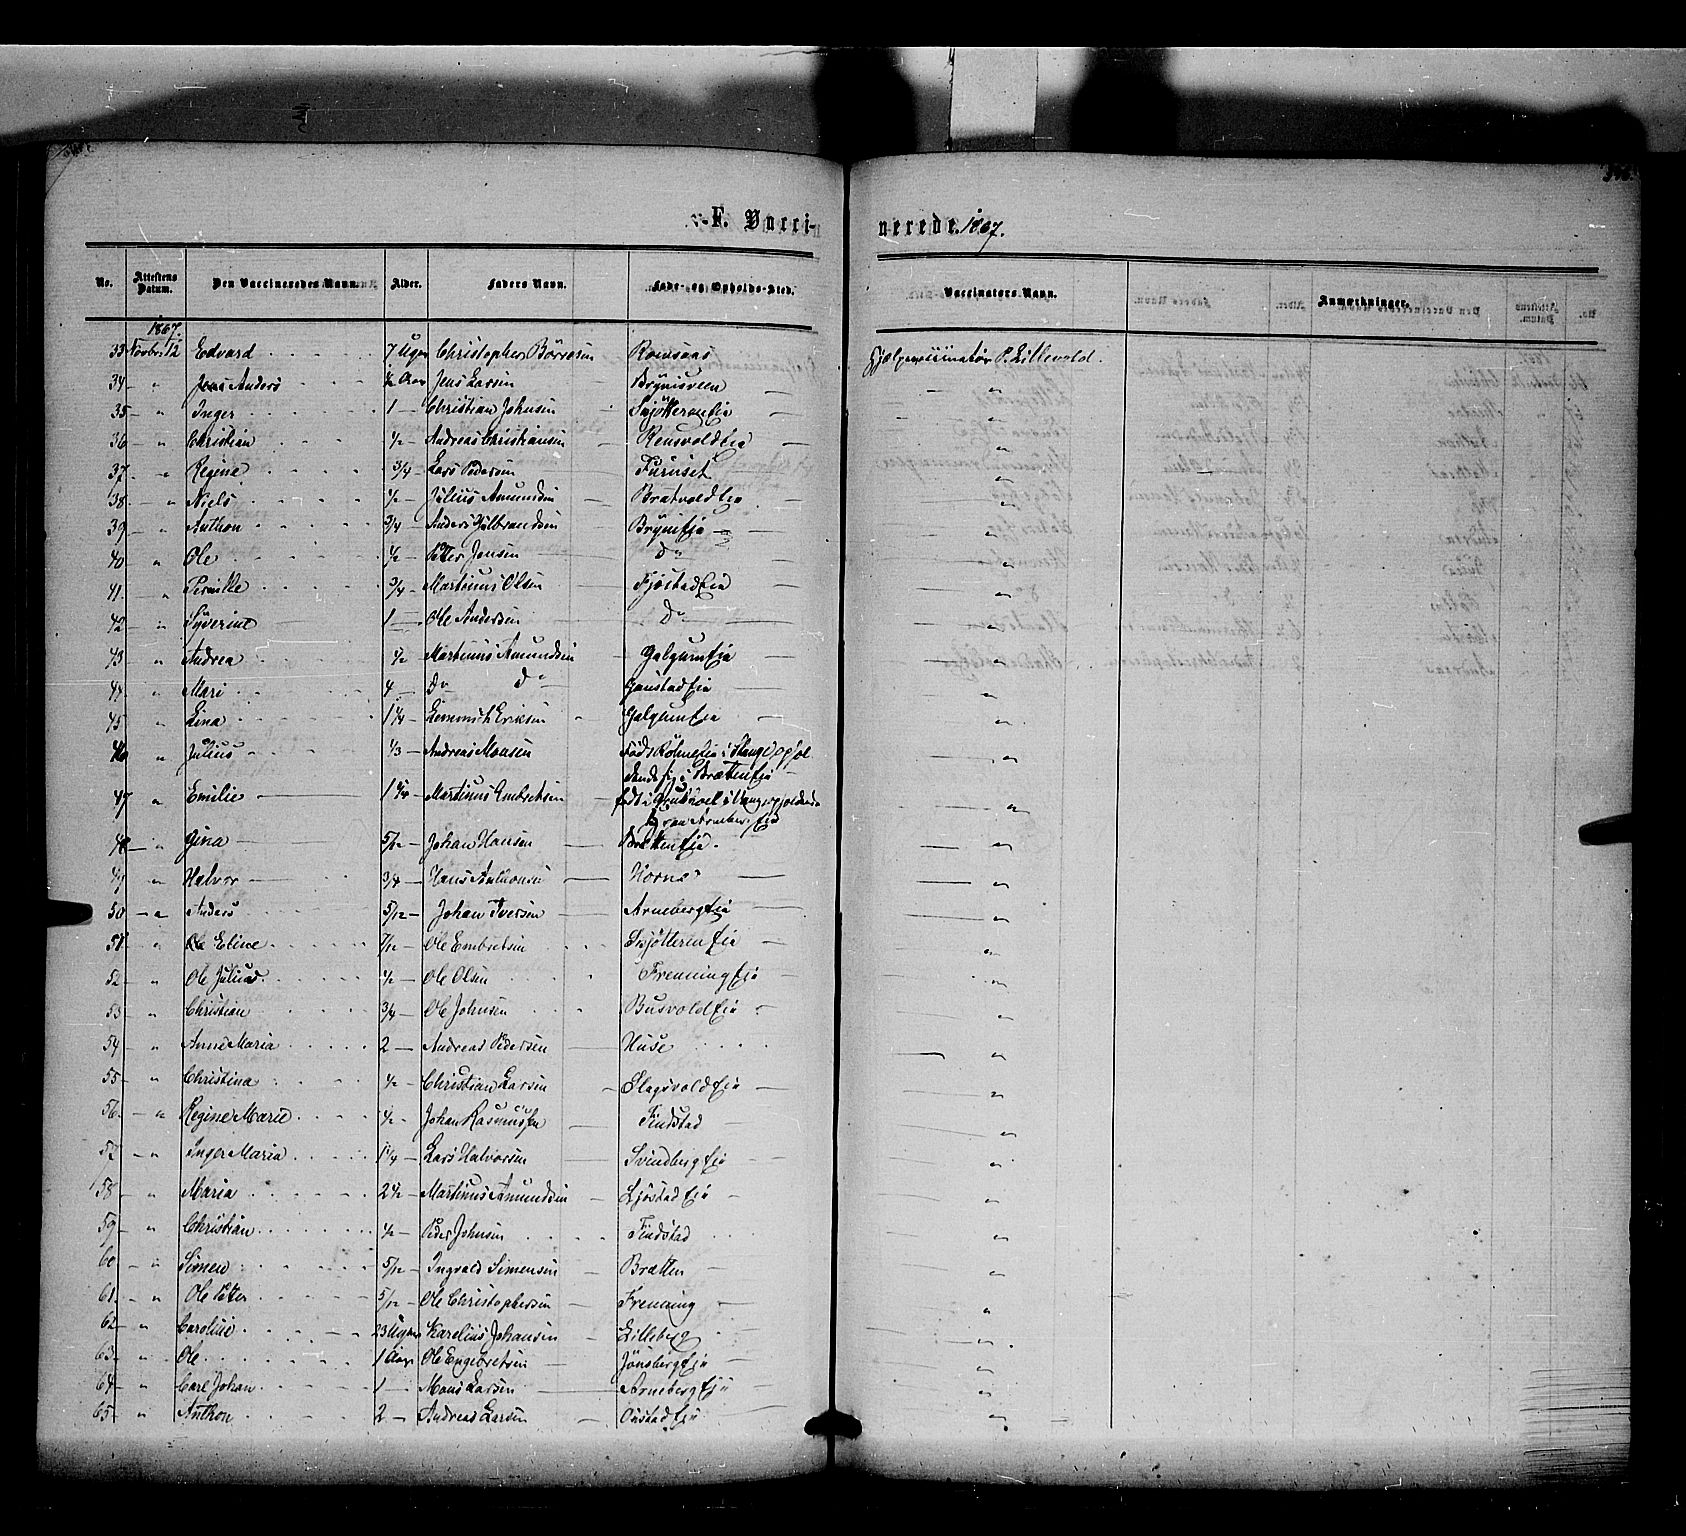 F. Vaccinerede. 1867.
No. Attestens Datum. Den Vaccineredes Navn. Alder. Faders Navn. Føde- og Opholds-Sted. Vaccinators Navn. Anmærkninger.
1867.
33 Novbr. 12 Edvard 7 Uger Christopher Börresen P. Lillevold.
34 " Jens Anders ½ Aar Jens Larsen Brynisveen "
35 " Inger 1 Christian Johnsen "
36 " Christian ½ Andreas Christiansen Rensvoldeie "
37 " Regine 3/4 Lars Pedersen Furuset "
38 " Niels ½ Julius Amundsen Bratvoldeie "
39 " Anthon 3/4 Anders Gulbrandsen Bryneie "
40 " Ole ½ Petter Jensen Do "
41 " Pernille 3/4 Martinus Olsen Fjøstadeie "
42 " Syverine 1 Ole Andersen Do "
43 " Andrea ½ Martinus Amundsen Galgumeie "
44 " Mari 4 Do Do Gaustadeie "
45 " Lina 1¼ Eriksen Galgumeie "
46 " Julius 1/3 Andreas Monsen Født Stange
Brætteneie "
47 " Emilie 1¼ Martinus Embretsen født i
Arneberg eie "
48 " Gina 5/12 Johan Hansen Brætteneie. "
49 " Halvor 3/4 Hans Anthonsen Horne "
50 " Anders 5/12 Johan Iversen Arnebergeie "
51 " Eline 7/12 Ole Embretsen Skjøttereneie "
52 " Ole Julius ½ Ole Olsen Frenningeie "
53 " Christian 3/4 Ole Johnsen Busvoldeie "
54 " Anne Maria 2 Andreas Pedersen Huse "
55 " Christina ½ Christian Larsen Slagsvoldeie "
56 " Regine Marie ½ Johan Rasmussen Findstad "
57 " Inger Maria 1¼ Lars Halvorsen Svindbergeie "
58 " Maria 2½ Martinus Amundsen Ljøstadeie "
59 " Christian ½ Peder Johnsen Findstad "
60 " Simen 5/12 Ingvald Simensen Brætten "
61 " Ole Petter 5/12 Ole Christophersen Frenning "
62 " Caroline 23 Uger Karelius Johansen Lilleberg "
63 " Ole 1 Aar Ole Engebretsen Jönsbergeie "
64 " Carl Johan 1 Mons Larsen Arnebergeie "
65 " Anthon 2 Andreas Larsen Oustadeie "